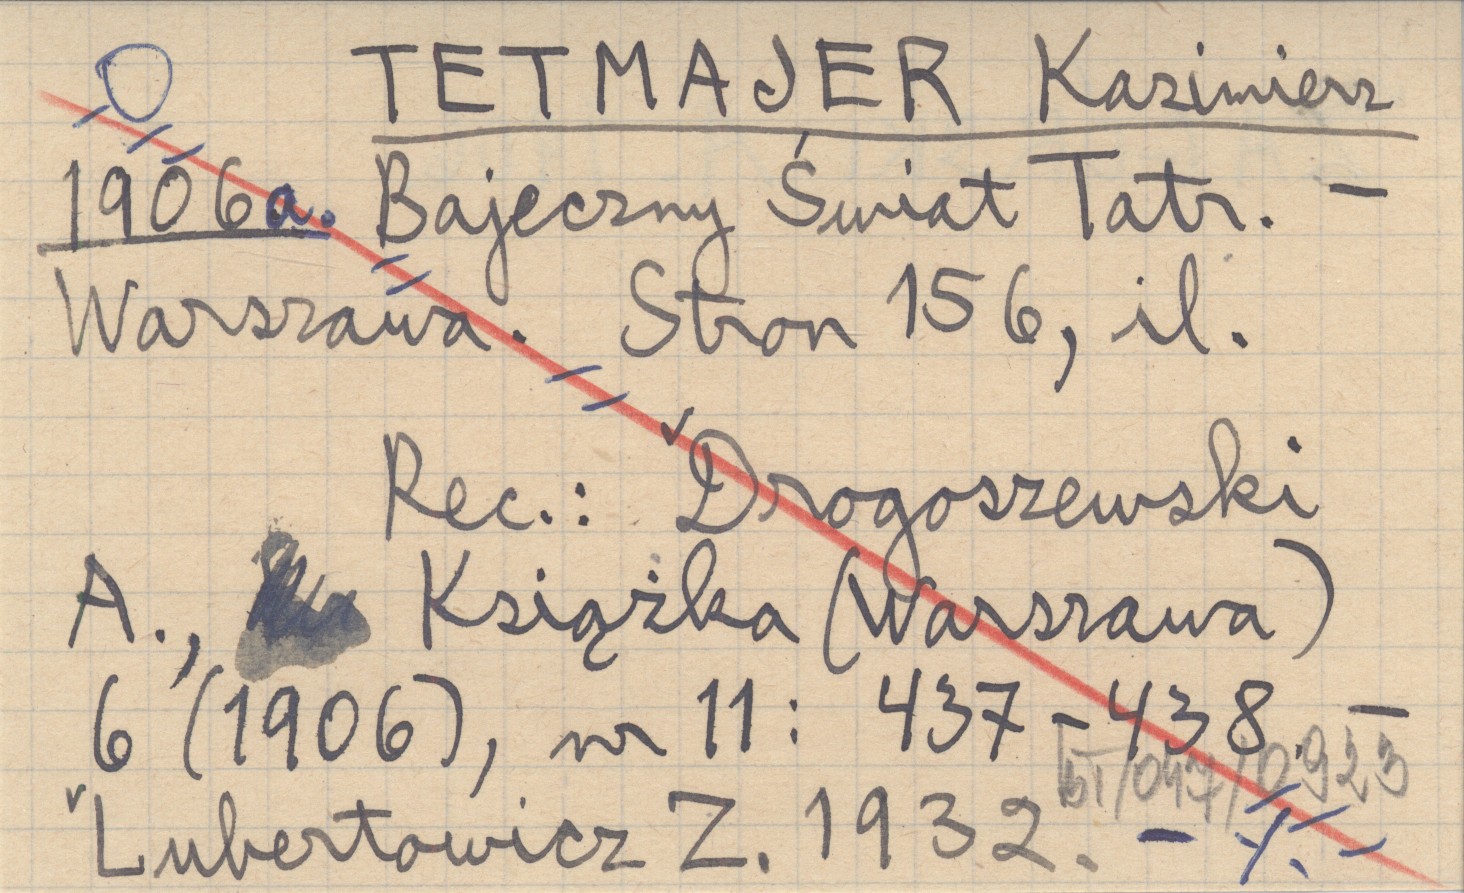 O TETMAJER Kazimierz
1906a. Bajeczny Świat Tatr. –
Warszawa. Stron 156, il.
Rec.: Drogoszewski
A., Książka (Warszawa)
6 (1906), nr 11: 437–438. –
Lubertowicz Z. 1932. –
/047/0923